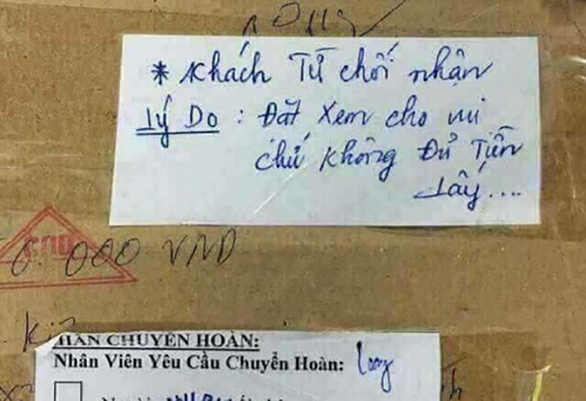 * Khách Từ chối nhận
Lý Do : Đặt xem cho vui
chứ không Đủ Tiền
Lấy....
COD
000 VND
CHUYỂN HOÀN:
Nhân Viên Yêu Cầu Chuyển Hoàn: